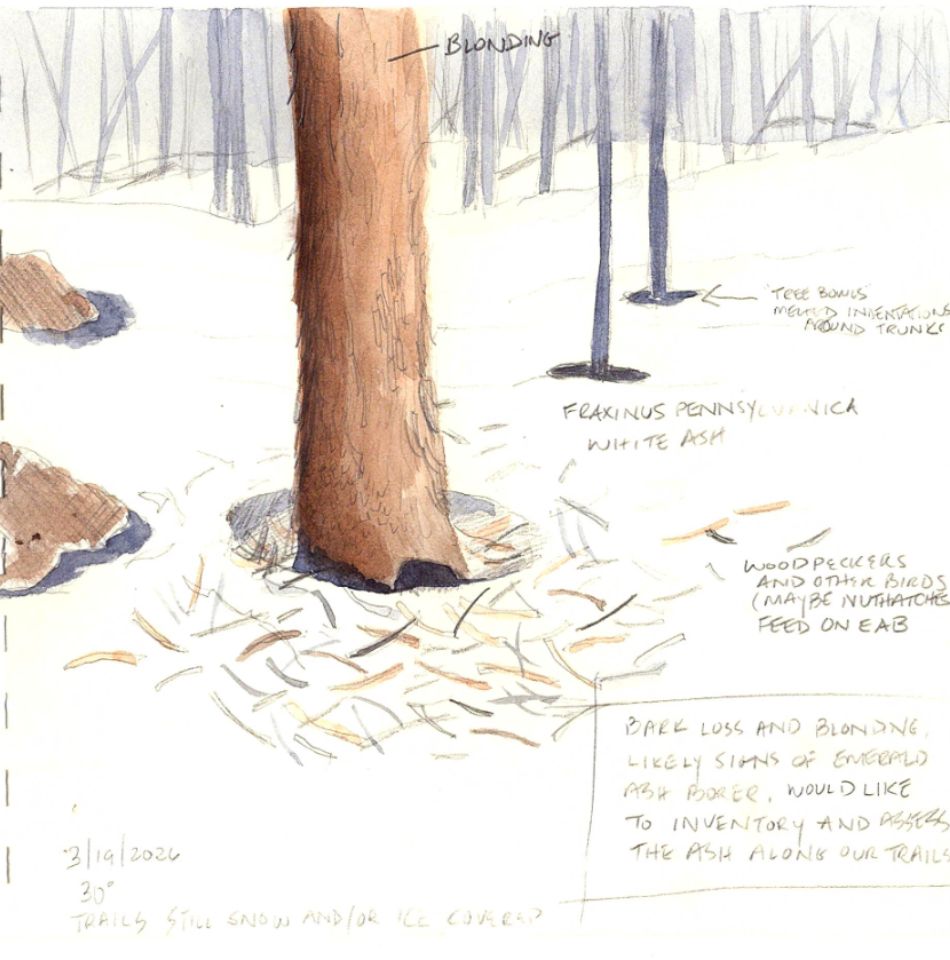 BLONDING
"TREE BOWLS"
MELTED INDENTATIONS
AROUND TRUNKS
FRAXINUS PENNSYLVANICA
WHITE ASH
WOODPECKERS
AND OTHER BIRDS
(MAYBE NUTHATCHES
FEED ON EAB
BARK LOSS AND BLONDNG,
LIKELY SIGNS OF EMERALD
ASH BORER. WOULD LIKE
TO INVENTORY AND ASSESS
THE ASH ALONG OUR TRAILS
3/19/2026
30°
TRAILS STILL SNOW AND/OR ICE COVERED